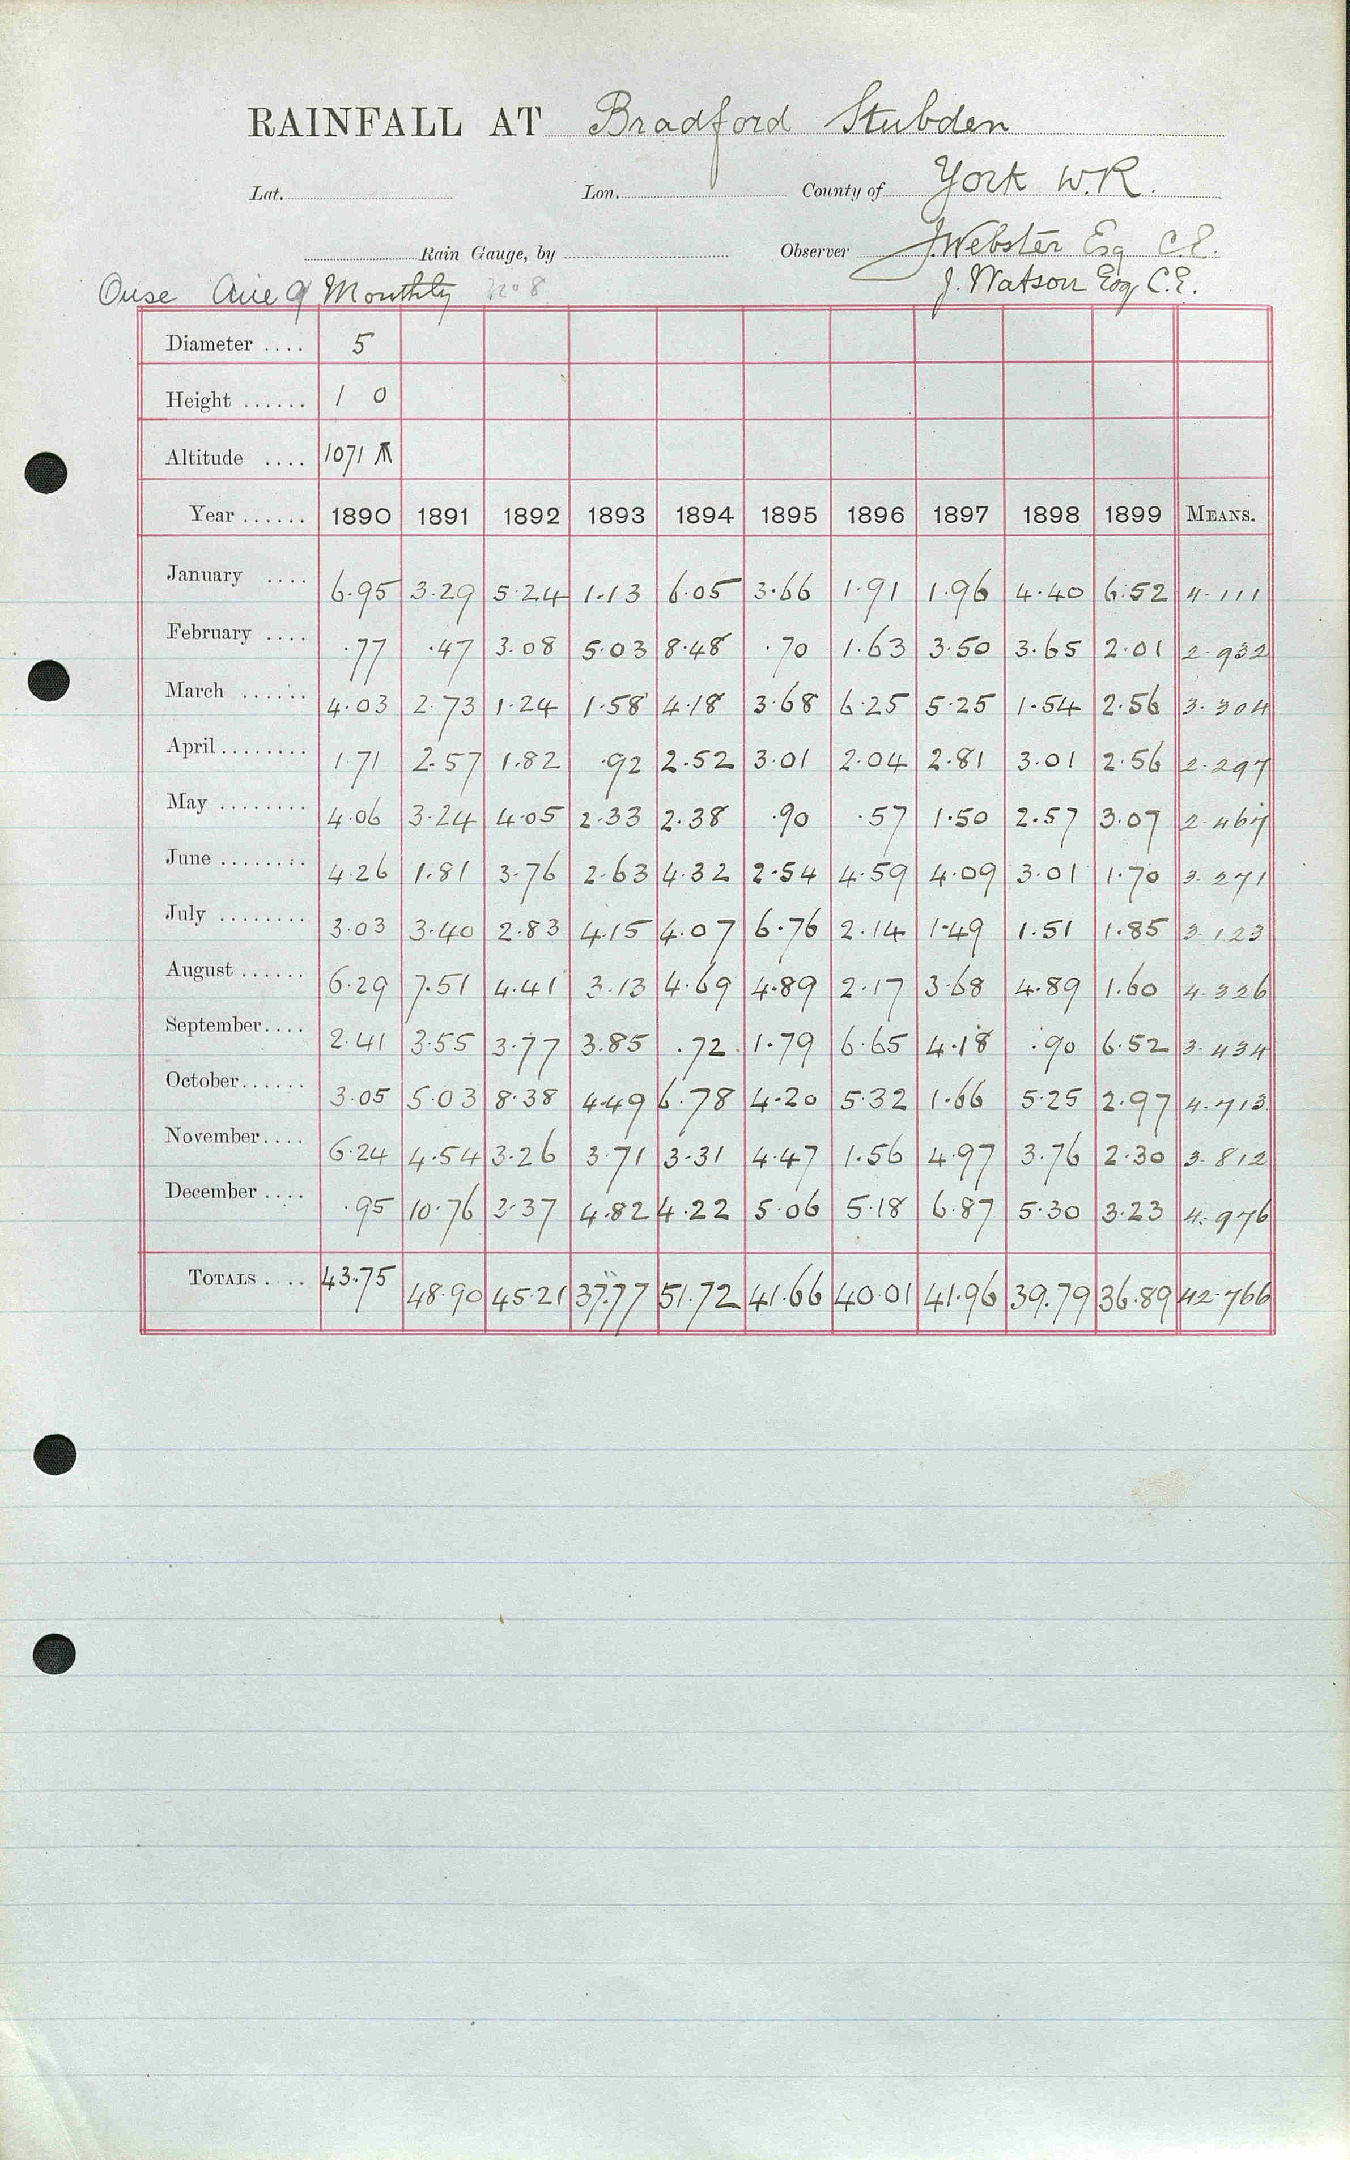 RAINFALL AT Bradford Stubden
Lat. Lon. County of York W.R.
Rain Gauge, by Observer J. Webster Esq C.E.
Ouse Aire 9 Monthly No 8 J. Watson Esq C.E.
Diameter .... 5
Height ...... 1 0
Altitude .... 1071
Year ...... 1890 1891 1892 1893 1894 1895 1896 1897 1898 1899 MEANS.
January .... 6.95 3.29 5.24 1.13 6.05 3.66 1.91 1.96 4.40 6.52 4.111
February .... .77 .47 3.08 5.03 8.48 .70 1.63 3.50 3.65 2.01 2.932
March ...... 4.03 2.73 1.24 1.58 4.18 3.68 6.25 5.25 1.54 2.56 3.304
April ........ 1.71 2.57 1.82 .92 2.52 3.01 2.04 2.81 3.01 2.56 2.297
May ........ 4.06 3.24 4.05 2.33 2.38 .90 .57 1.50 2.57 3.07 2.467
June ........ 4.26 1.81 3.76 2.63 4.32 2.54 4.59 4.09 3.01 1.70 3.271
July ........ 3.03 3.40 2.83 4.15 4.07 6.76 2.14 1.49 1.51 1.85 3.123
August ...... 6.29 7.51 4.41 3.13 4.69 4.89 2.17 3.68 4.89 1.60 4.326
September.... 2.41 3.55 3.77 3.85 .72 1.79 6.65 4.18 .90 6.52 3.434
October...... 3.05 5.03 8.38 4.49 6.78 4.20 5.32 1.66 5.25 2.97 4.713
November.... 6.24 4.54 3.26 3.71 3.31 4.47 1.56 4.97 3.76 2.30 3.812
December .... .95 10.76 3.37 4.82 4.22 5.06 5.18 6.87 5.30 3.23 4.976
TOTALS .... 43.75 48.90 45.21 37.77 51.72 41.66 40.01 41.96 39.79 36.89 42.766